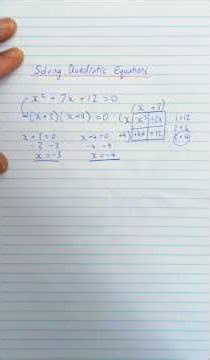 Solving Quadratic Equations
x² + 7x + 12 = 0
(x+3)(x+4) = 0
x +3
x x² +3x
+4 +4x +12
1 × 12
2 × 6
3 × 4
x+3=0 x+4=0
-3 -3 -4 -4
x = -3 x = -4